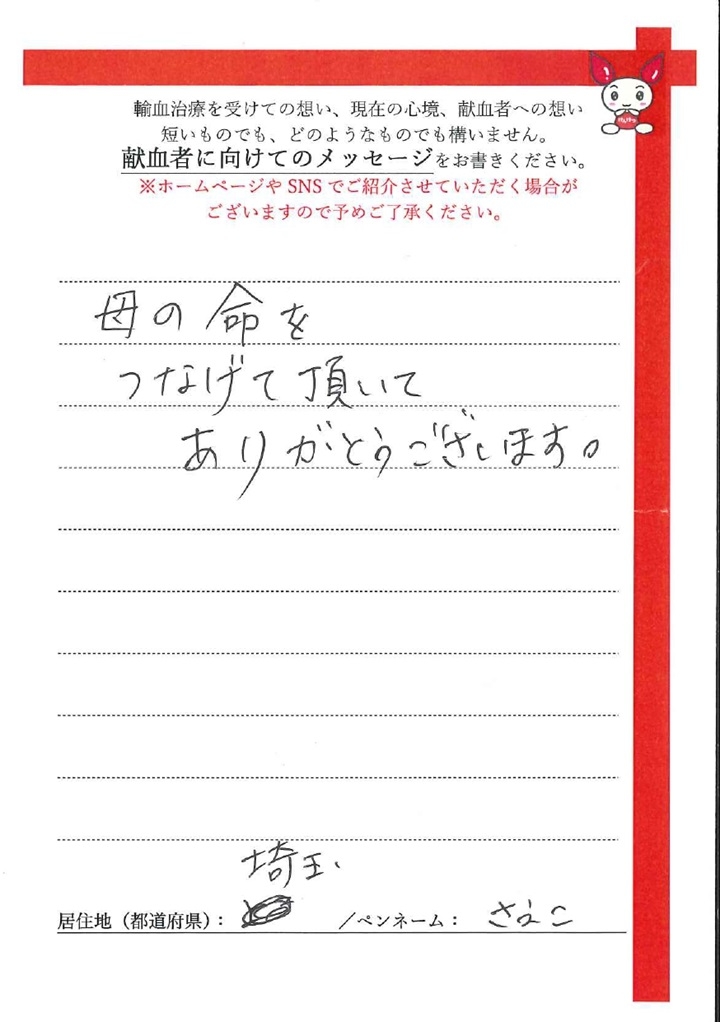 輸血治療を受けての想い、現在の心境、献血者への想い
短いものでも、どのようなものでも構いません。
献血者に向けてのメッセージをお書きください。
※ホームページや SNS でご紹介させていただく場合が
ございますので予めご了承ください。
母の命を
つなげて頂いて
ありがとうございます。
埼玉
居住地（都道府県）： ／ペンネーム： さえこ